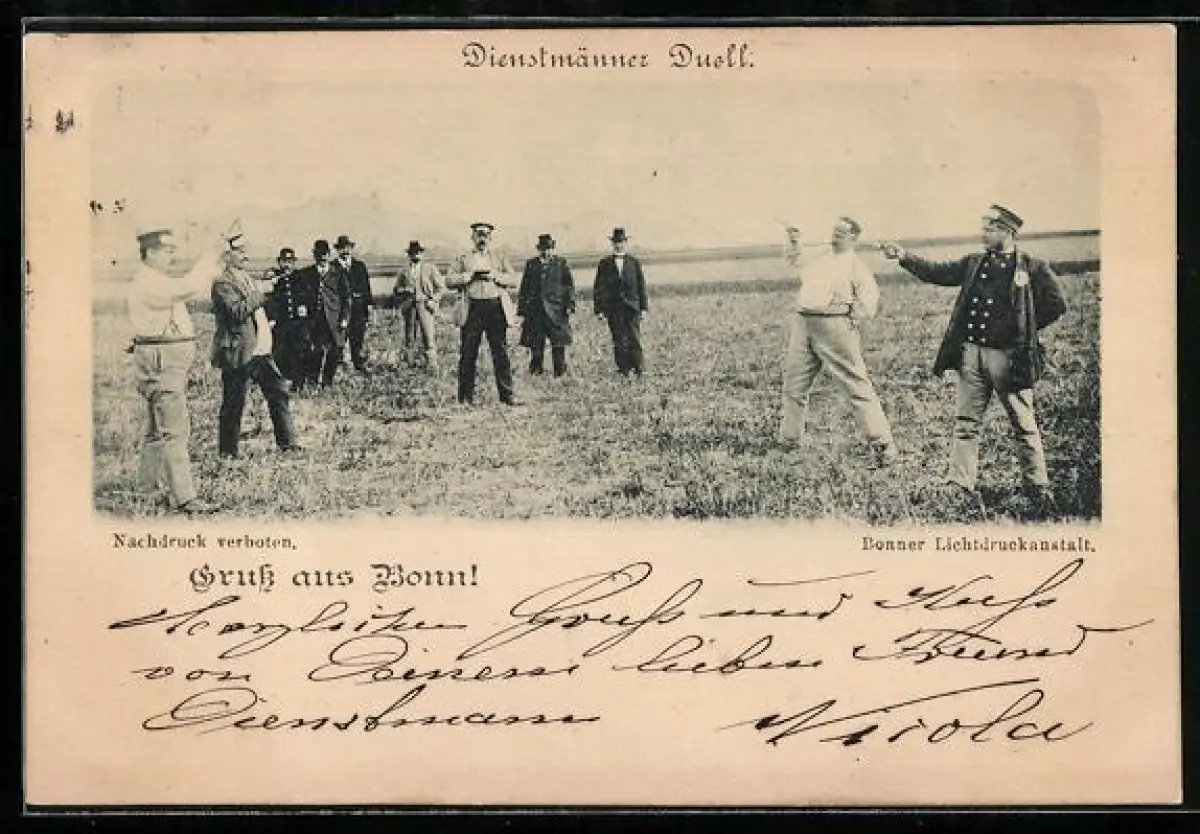 Dienstmänner Duell.
Nachdruck verboten.
Bonner Lichtdruckanstalt.
Gruß aus Bonn!
Herzlichen Gruß und Kuß
von Deinem lieben Freund
Dienstmann Nicola